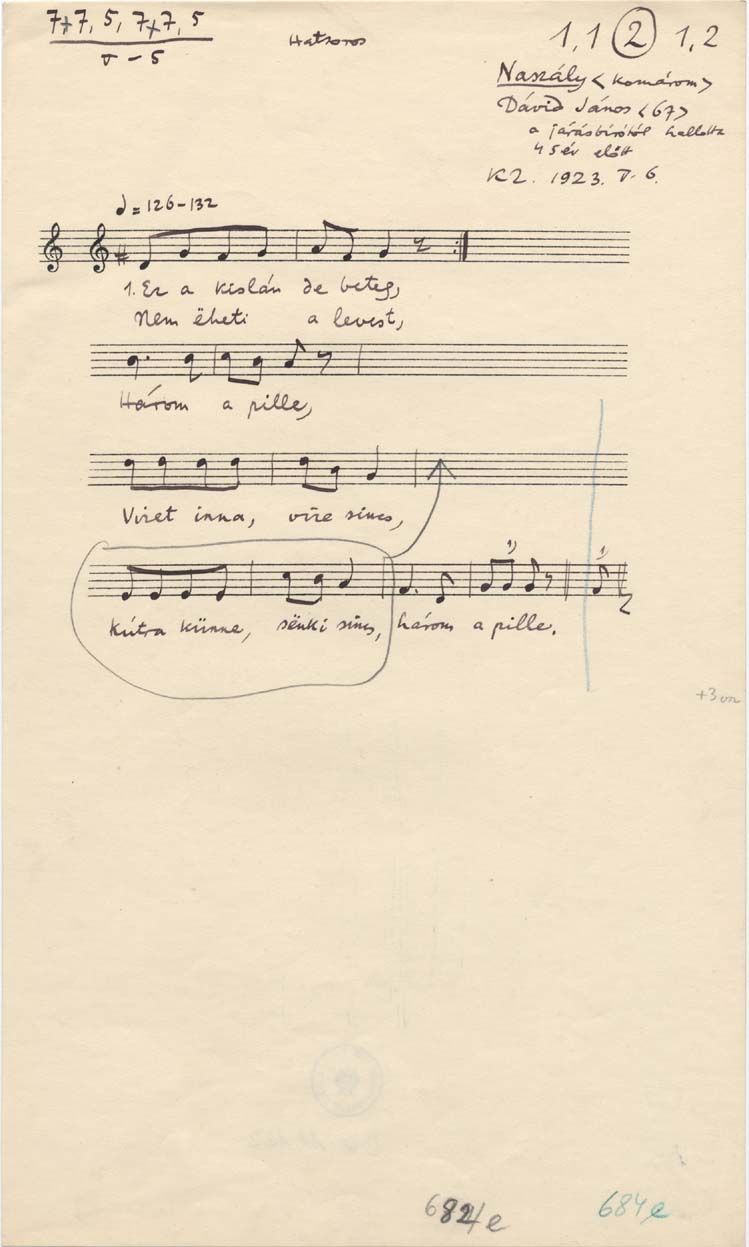 7+7, 5, 7+7, 5
V – 5
Hatsoros
1,1 (2) 1,2
Naszály <Komárom>
Dávid János <67>
a járásbírótól hallotta
45 év előtt
KZ. 1923. V. 6.
♩=126-132
1. Ez a kislán de beteg,
Nem ëheti a levest,
Három a pille,
Vizet inna, vize sincs,
1) 1)
Kútra künne, sënki sincs, három a pille.
+3
684e